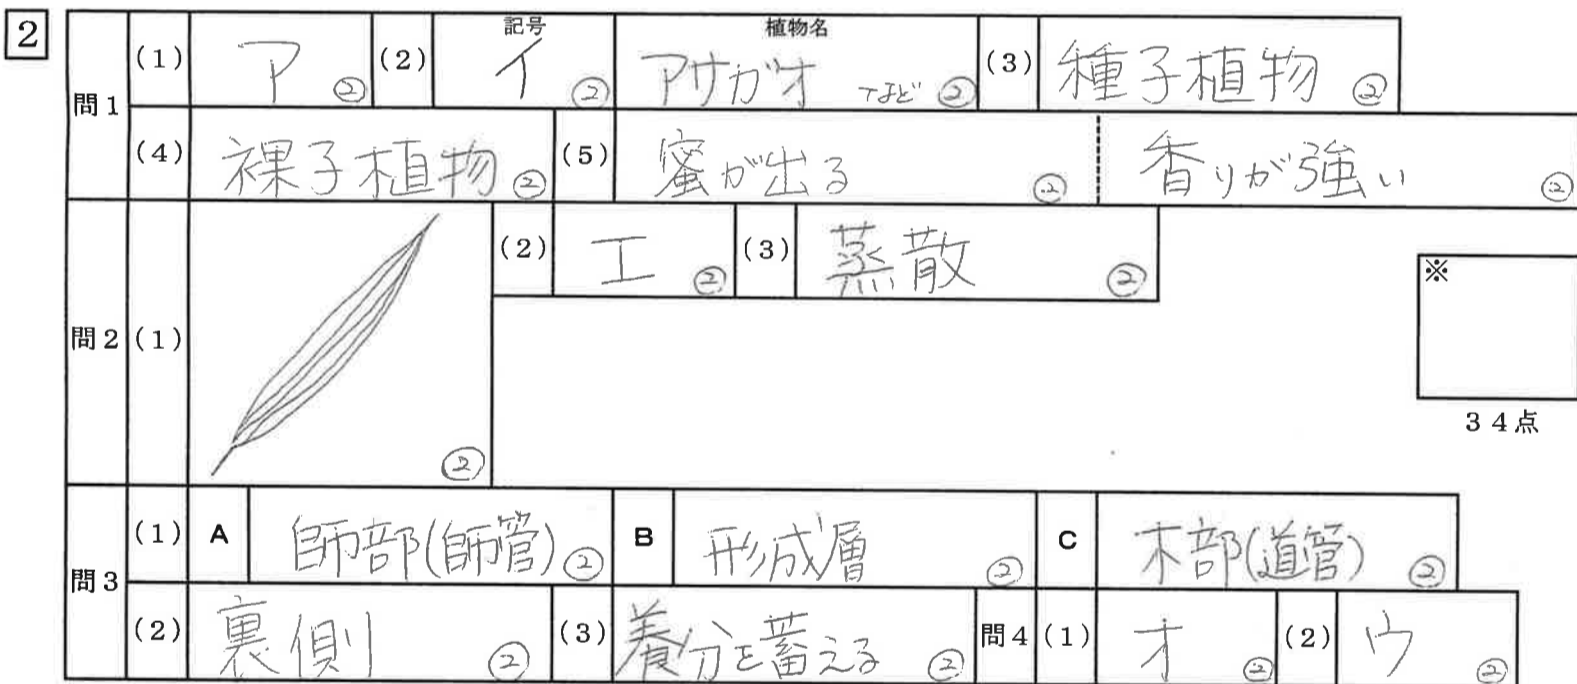 2
記号 植物名
問1 (1) ア ② (2) イ ② アサガオ など ② (3) 種子植物 ②
(4) 裸子植物 ② (5) 蜜が出る ② 香りが強い ②
問2 (1) ② (2) エ ② (3) 蒸散 ②
※
34点
問3 (1) A 師部(師管) ② B 形成層 ② C 木部(道管) ②
(2) 裏側 ② (3) 養分を蓄える ② 問4 (1) オ ② (2) ウ ②